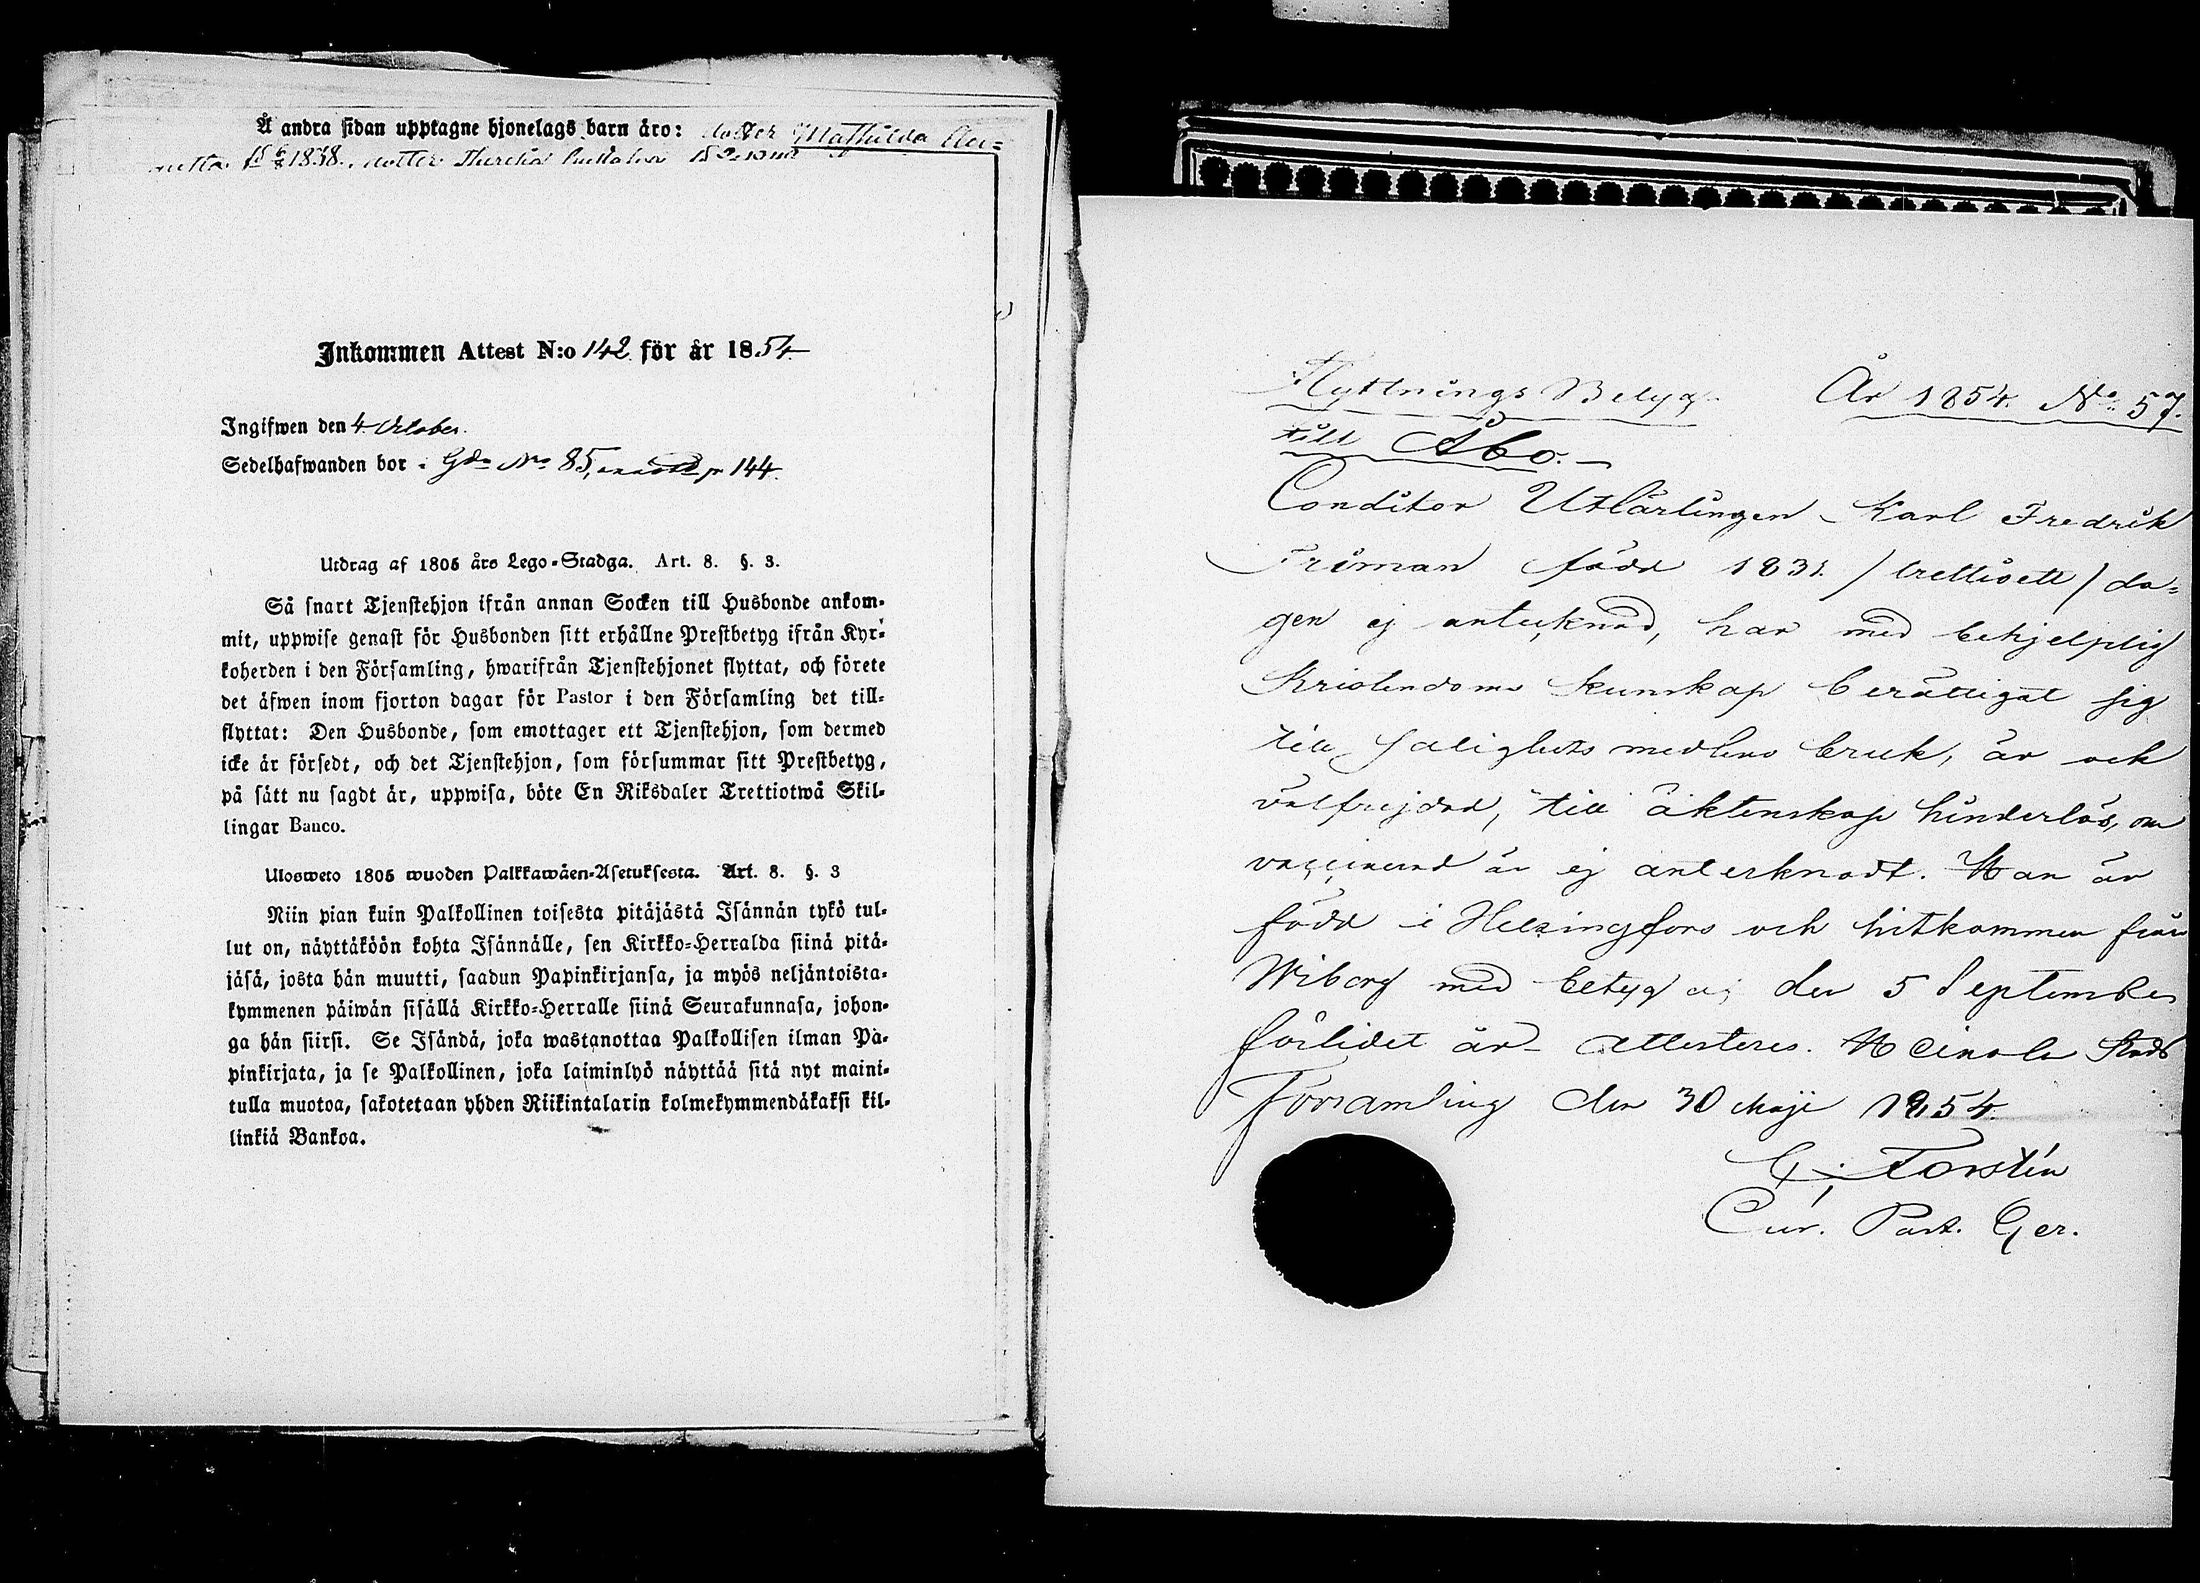 Å andra sidan upptagne hjonelags barn äro: dotter Mathilda
1838. dotter
Inkommen Attest N:o 142 för år 1854
Ingifwen den 4 October.
Sedelhafwanden bor i Gdn No 85, p 144.
Utdrag af 1805 års Lego-Stadga. Art. 8. §. 3.
Så snart Tjenstehjon ifrån annan Socken till Husbonde ankom-
mit, uppwise genast för Husbonden sitt erhållne Prestbetyg ifrån Kyr-
koherden i den Församling, hwarifrån Tjenstehjonet flyttat, och förete
det äfwen inom fjorton dagar för Pastor i den Församling det till-
flyttat: Den Husbonde, som emottager ett Tjenstehjon, som dermed
icke är försedt, och det Tjenstehjon, som försummar sitt Prestbetyg,
på sätt nu sagdt är, uppwisa, böte En Riksdaler Trettiotwå Skil-
lingar Banco.
Ulosweto 1805 wuoden Palkkawäen-Asetuksesta. Art. 8. §. 3
Niin pian kuin Palkollinen toisesta pitäjästä Isännän tykö tul-
lut on, näyttäköön kohta Isännälle, sen Kirkko-Herralda siinä pitä-
jäsä, josta hän muutti, saadun Papinkirjansa, ja myös neljäntoista-
kymmenen päiwän sisällä Kirkko-Herralle siinä Seurakunnasa, johon-
ga hän siirsi. Se Isändä, joka wastanottaa Palkollisen ilman Pa-
pinkirjata, ja se Palkollinen, joka laiminlyö näyttää sitä nyt maini-
tulla muotoa, sakotetaan yhden Riikintalarin kolmekymmendäkaksi kil-
linkiä Bankoa.
Flyttnings Betyg År 1854. No 57.
till Åbo.
Conditor Utlärlingen Karl Fredrik
Friman född 1831. / trettioett / da-
gen ej antecknad, har med behjelplig
Kristendoms kunskap berättigat sig
till salighets medlens bruk, är ock
välfrejdad, till äktenskap hinderlös, om
vaccinerad är ej antecknadt. Han är
född i Helsingfors och hitkommen från
Wiborg med betyg af den 5 September
förlidet år attesteres. Heinola Stads
Församling den 30 Maji 1854.
G. Forstén
Cur. Past. Ger.